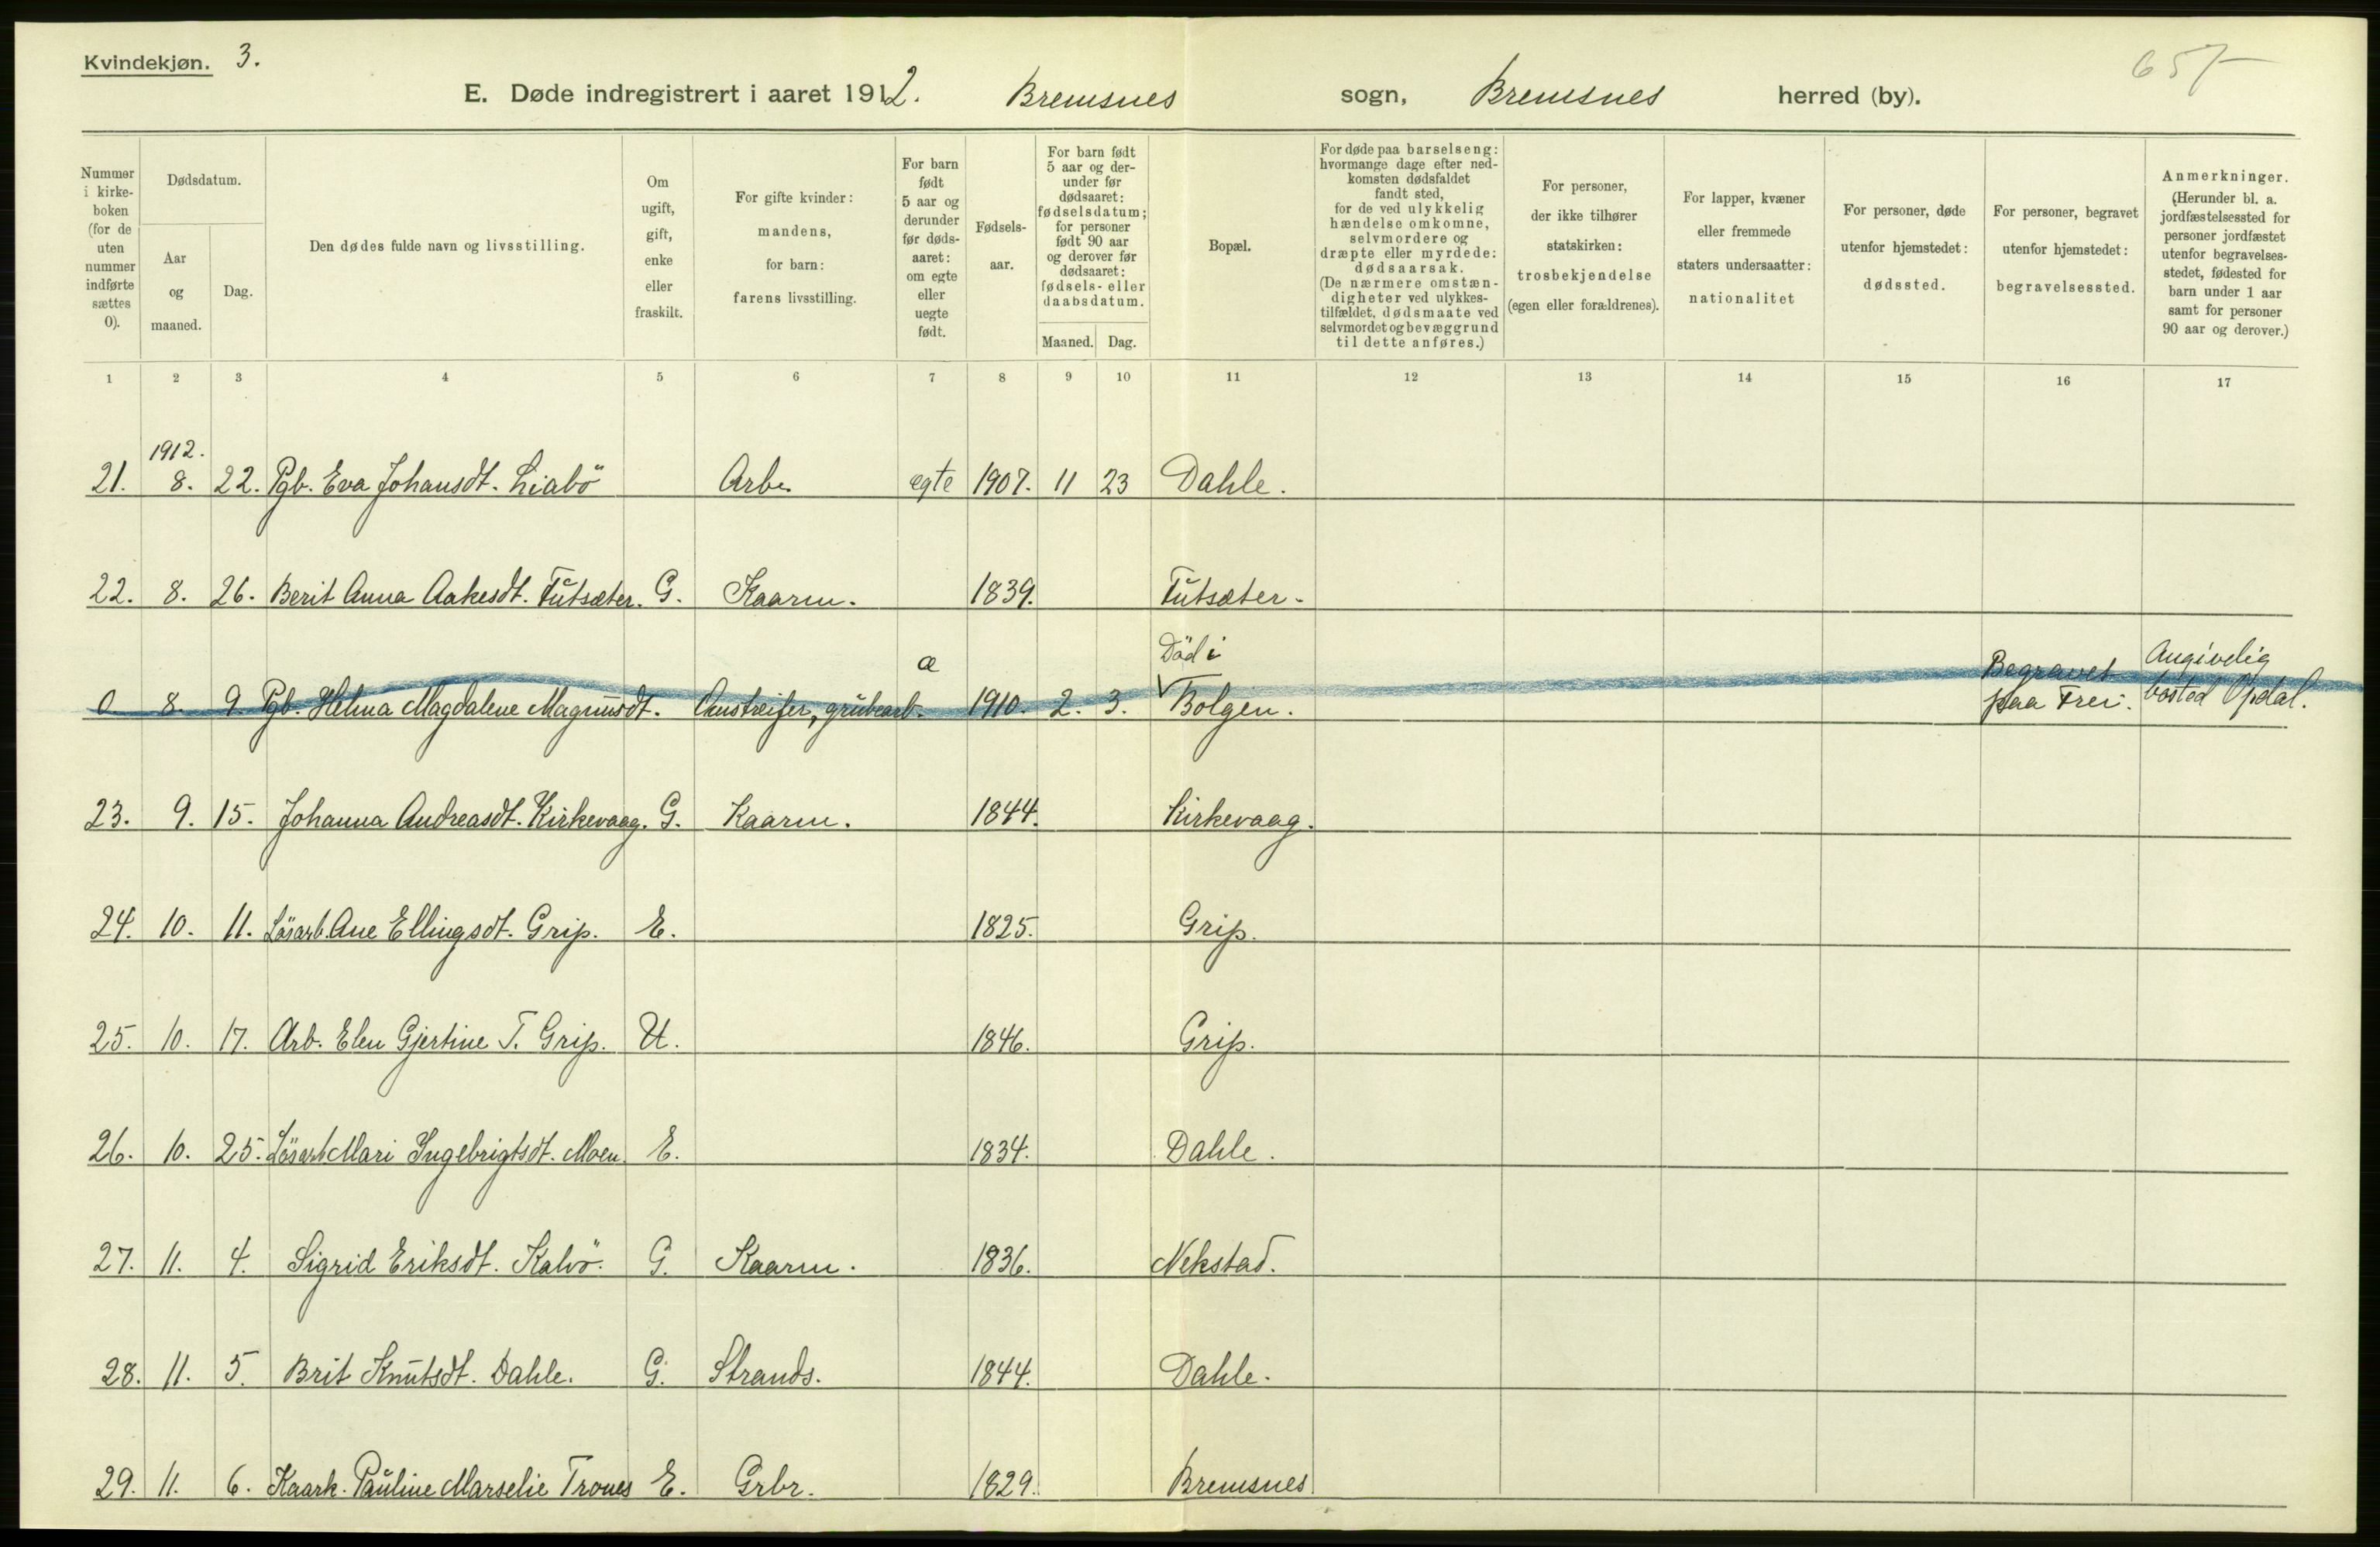 Kvindekjøn. 3.
657
E. Døde indregistrert i aaret 1912. Bremsnes sogn, Bremsnes herred (by).
Nummer i kirke-boken (for de uten nummer indførte sættes 0).
Dødsdatum.
Aar og maaned.
Dag.
Den dødes fulde navn og livsstilling.
Om ugift, gift, enke eller fraskilt.
For gifte kvinder: mandens, for barn: farens livsstilling.
For barn født 5 aar og derunder før døds-aaret: om egte eller uegte født.
Fødsels-aar.
For barn født 5 aar og der-under før dødsaaret: fødselsdatum; for personer født 90 aar og derover før dødsaaret: fødsels- eller daabsdatum.
Maaned. Dag.
Bopæl.
For døde paa barselseng: hvormange dage efter ned-komsten dødsfaldet fandt sted, for de ved ulykkelig hændelse omkomne, selvmordere og dræpte eller myrdede: dødsaarsak. (De nærmere omstæn-digheter ved ulykkes-tilfældet, dødsmaate ved selvmordet og bevæggrund til dette anføres.)
For personer, der ikke tilhører statskirken: trosbekjendelse (egen eller forældrenes).
For lapper, kvæner eller fremmede staters undersaatter: nationalitet
For personer, døde utenfor hjemstedet: dødssted.
For personer, begravet utenfor hjemstedet: begravelsessted.
Anmerkninger. (Herunder bl. a. jordfæstelsessted for personer jordfæstet utenfor begravelses-stedet, fødested for barn under 1 aar samt for personer 90 aar og derover.)
1 2 3 4 5 6 7 8 9 10 11 12 13 14 15 16 17
1912.
21. 8. 22. Pgb. Eva Johansdt. Liabö Arb. egte 1907. 11 23 Dahle.
22. 8. 26. Berit Anna Aakesdt. Futsæter. G. Kaarm. 1839. Futsæter.
æ Död i Begravet Angivelig
0 8. 9 Pgb. Helma Magdalene Magnusdt. Omstreifer, grubearb. 1910. 2. 3. Bolgen. paa Frei. bosted Opdal.
23. 9. 15. Johanna Andreasdt. Kirkevaag. G. Kaarm. 1844. Kirkevaag.
24. 10. 11. Lösarb. Ane Ellingsdt. Grip. E. 1825. Grip.
25. 10. 17. Arb. Elen Gjertine T. Grip. U. 1846. Grip.
26. 10. 25. Lösarb Mari Ingebrigtsdt. Moen. E. 1834. Dahle.
27. 11. 4. Sigrid Eriksdt. Kalvö. G. Kaarm. 1836. Nekstad.
28. 11. 5. Brit Knutsdt. Dahle. G. Strands. 1844. Dahle.
29. 11. 6. Kaark. Pauline Marselie Trones E. Grbr. 1829. Bremsnes